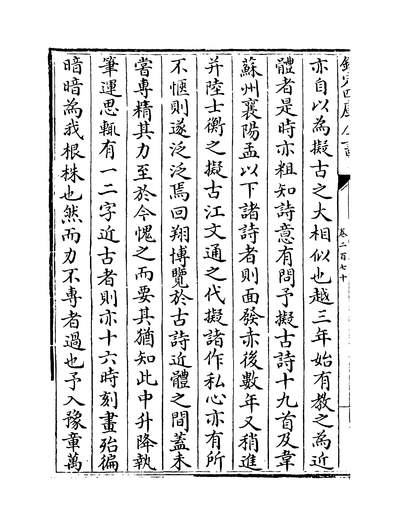 欽定四庫全書
卷二百七十
亦自以為擬古之大相似也越三年始有教之為近
體者是時亦粗知詩意有問予擬古詩十九首及韋
蘇州襄陽孟以下諸詩者則面發赤後數年又稍進
并陸士衡之擬古江文通之代擬諸作私心亦有所
不愜則遂泛泛焉回翔博覽於古詩近體之間蓋未
嘗専精其力至於今愧之而要其猶知此中升降執
筆運思輒有一二字近古者則亦十六時刻畫殆徧
暗暗為我根株也然而力不專者過也予入豫章萬